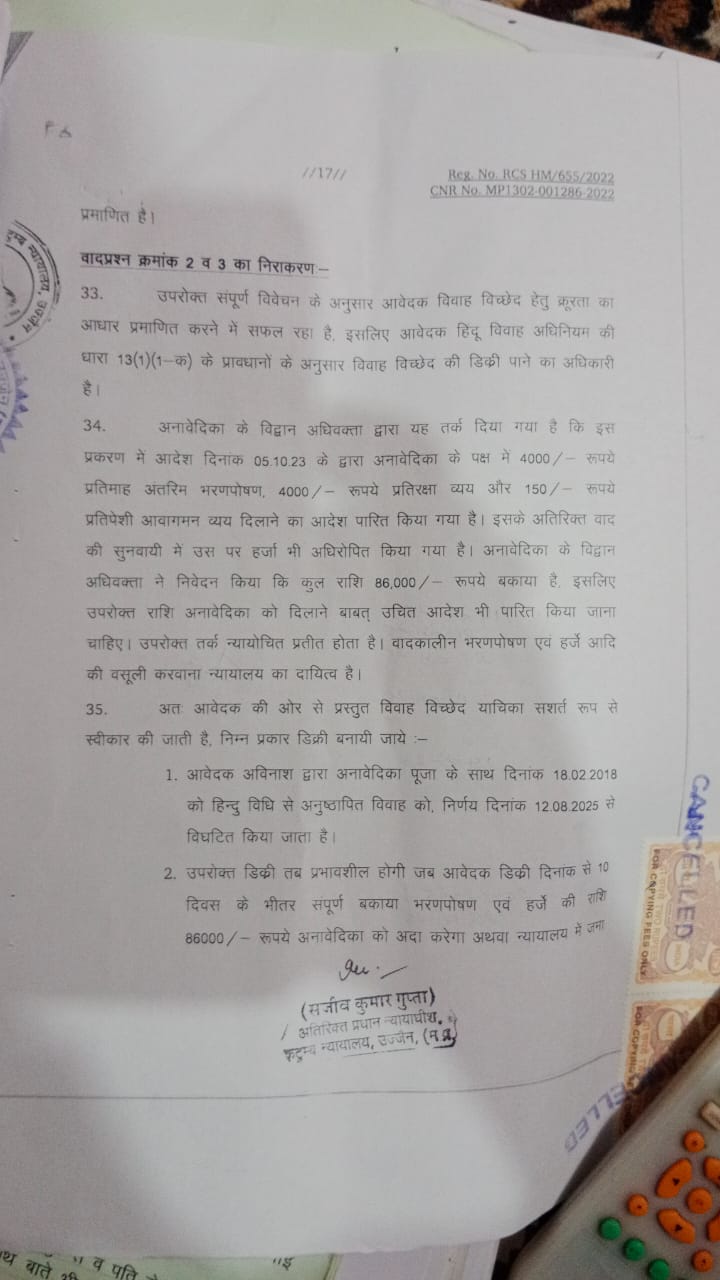 //17//
Reg. No. RCS HM/655/2022
CNR No. MP1302-001286-2022
प्रमाणित है।
वादप्रश्न क्रमांक 2 व 3 का निराकरण:–
33. उपरोक्त संपूर्ण विवेचन के अनुसार आवेदक विवाह विच्छेद हेतु क्रूरता का
आधार प्रमाणित करने में सफल रहा है, इसलिए आवेदक हिंदू विवाह अधिनियम की
धारा 13(1)(1–क) के प्रावधानों के अनुसार विवाह विच्छेद की डिक्री पाने का अधिकारी
है।
34. अनावेदिका के विद्वान अधिवक्ता द्वारा यह तर्क दिया गया है कि इस
प्रकरण में आदेश दिनांक 05.10.23 के द्वारा अनावेदिका के पक्ष में 4000/– रूपये
प्रतिमाह अंतरिम भरणपोषण, 4000/– रूपये प्रतिरक्षा व्यय और 150/– रूपये
प्रतिपेशी आवागमन व्यय दिलाने का आदेश पारित किया गया है। इसके अतिरिक्त वाद
की सुनवायी में उस पर हर्जा भी अधिरोपित किया गया है। अनावेदिका के विद्वान
अधिवक्ता ने निवेदन किया कि कुल राशि 86,000/– रूपये बकाया है, इसलिए
उपरोक्त राशि अनावेदिका को दिलाने बाबत् उचित आदेश भी पारित किया जाना
चाहिए। उपरोक्त तर्क न्यायोचित प्रतीत होता है। वादकालीन भरणपोषण एवं हर्जे आदि
की वसूली करवाना न्यायालय का दायित्व है।
35. अतः आवेदक की ओर से प्रस्तुत विवाह विच्छेद याचिका सशर्त रूप से
स्वीकार की जाती है, निम्न प्रकार डिक्री बनायी जाये :–
1. आवेदक अविनाश द्वारा अनावेदिका पूजा के साथ दिनांक 18.02.2018
को हिन्दु विधि से अनुष्ठापित विवाह को, निर्णय दिनांक 12.08.2025 से
विघटित किया जाता है।
2. उपरोक्त डिक्री तब प्रभावशील होगी जब आवेदक डिक्री दिनांक से 10
दिवस के भीतर संपूर्ण बकाया भरणपोषण एवं हर्जे की राशि
86000/– रूपये अनावेदिका को अदा करेगा अथवा न्यायालय में जमा
(सजीव कुमार गुप्ता)
अतिरिक्त प्रधान न्यायाधीश,
कुटुम्ब न्यायालय, उज्जैन, (म.प्र.)
कुटुम्ब न्यायालय, उज्जैन
CANCELLED
FOR COPYING FEES ONLY
FOR COPYING
CELLED
व पति